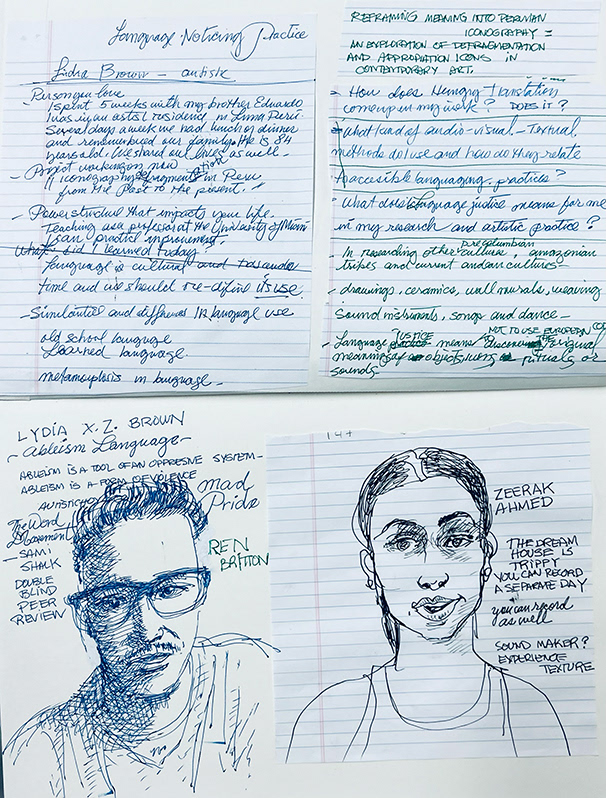 Language Noticing Practice
Lidia Brown - autistk
- Person you love
spent 5 weeks with my brother Eduardo
I was in an artist residenci in Lima Peru.
Several days a week we had lunch or dinner
and remembered our family. He is 84
years old. We shared our lives as well -
- Project working on now
"Iconography fragments in Peru
from the Past to the present."
- Power structure that impacts your life.
Teaching as a professor at the University of Miami
can practice improvement.
What did I learned today?
language is cultural and
time and we should re-difine its use.
- Similarities and differences in language use
old school language
Learned language.
metamorphosis in language -
REFRAMING MEANING INTO PERUVIAN
ICONOGRAPHY =
AN EXPLORATION OF DEFRAGMENTATION
AND APPROPIATION ICONS IN
CONTEMPORARY ART.
- How does Hungry Translation
come up in my work? DOES IT?
- What kind of audio-visual - Textual
methods do I use and how do they relate
to accesible languaging practices?
- What does language justice means for me
in my research and artistic practice?
precolumbian
- In researching other culture, amazonian
tribes and current andean cultures -
- drawings, ceramics, wall murals, weaving
sound instruments, songs and dance -
JUSTICE NOT TO USE EUROPEAN
- Language means discover the original
meaning of objects, rituals or
sounds
LYDIA X.Z. BROWN
- Ableism Language -
ABLEISM IS A TOOL OF AN OPPRESIVE SYSTEM -
ABLEISM IS A FORM OF VIOLENCE
Mad
Pride
The Word
Movement
- SAMI
SHALK
DOUBLE
BLIND
PEER
REVIEW
REN
BRITTON
ZEERAK
AHMED
THE DREAM
HOUSE IS
TRIPPY
YOU CAN RECORD
A SEPARATE DAY
you can record
as well
SOUND MAKER?
EXPERIENCE
TEXTURE